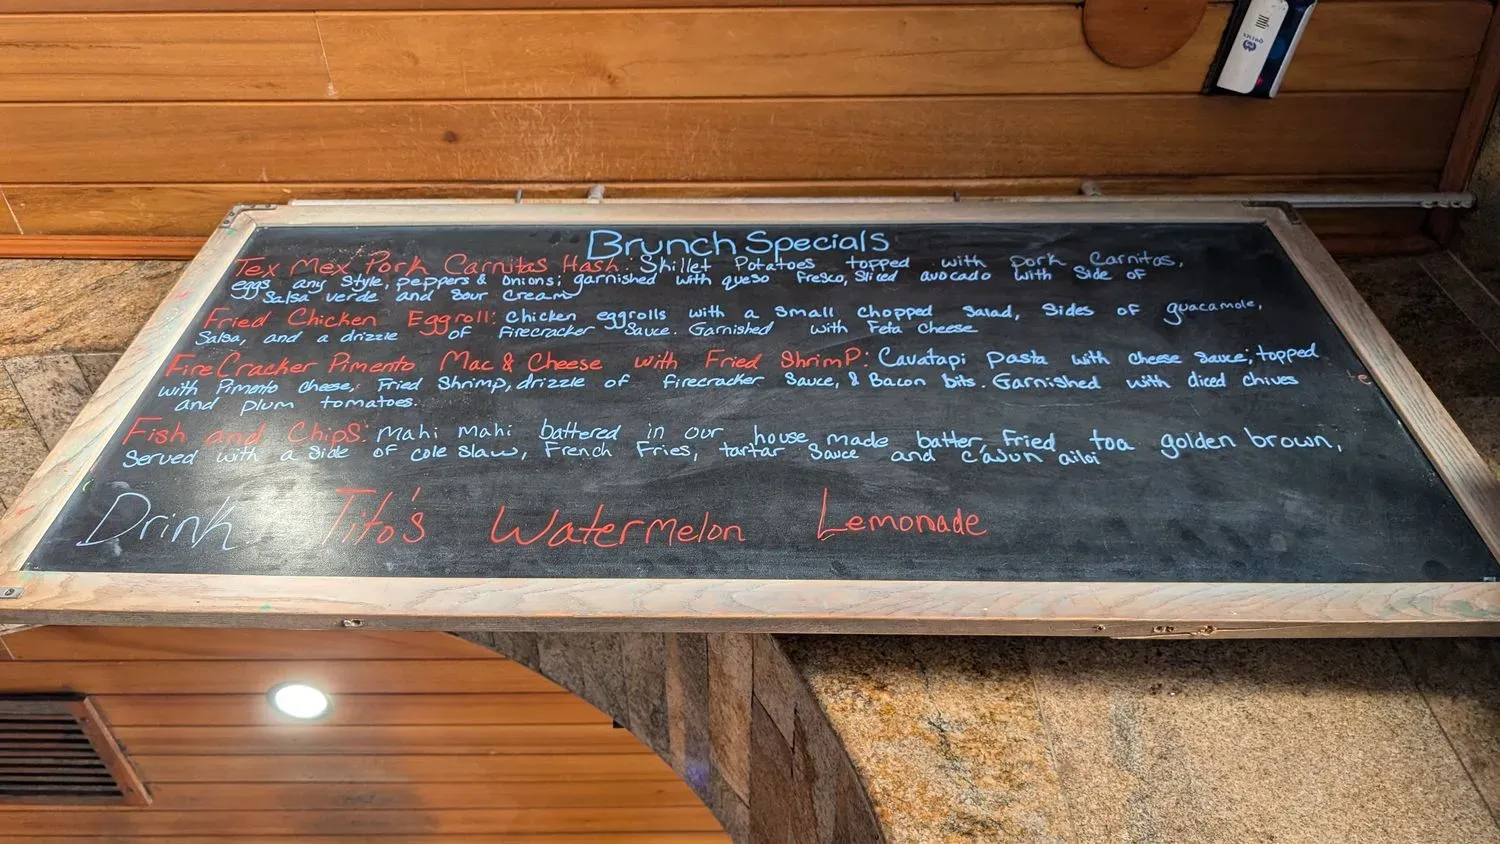 Brunch Specials
Tex Mex Pork Carnitas Hash: Skillet Potatoes topped with pork Carnitas,
eggs any style, peppers & onions; garnished with queso fresco, sliced avocado with side of
Salsa verde and Sour Cream
Fried Chicken Eggroll: Chicken eggrolls with a small chopped salad, sides of guacamole,
Salsa, and a drizzle of Firecracker Sauce. Garnished with Feta Cheese
FireCracker Pimento Mac & Cheese with Fried Shrimp: Cavatapi Pasta with cheese sauce; topped
with Pimento cheese, Fried Shrimp, drizzle of firecracker Sauce, & Bacon bits. Garnished with diced chives
and plum tomatoes.
Fish and Chips: Mahi Mahi battered in our house made batter, Fried toa golden brown,
Served with a side of cole slaw, French Fries, tartar Sauce and cajun ailoi
Drink Tito's Watermelon Lemonade